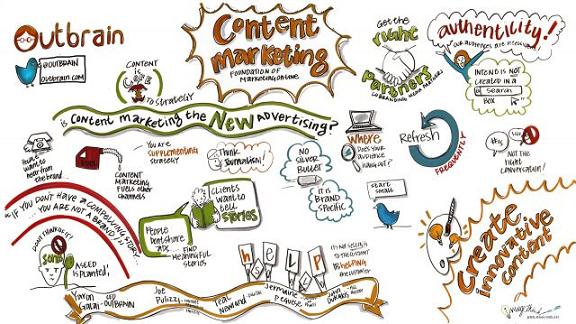 Outbrain
@OUTBRAIN
outbrain.com
CONTENT
IS
CORE
TO STRATEGY
Content
marketing
FOUNDATION OF
MARKETING ONLINE
Get the
right
Partners
authenticity!
OUR AUDIENCES ARE
INTENT IS NOT
CREATED IN A
Search
BOX
is Content marketing the NEW advertising?
want to
hear from
the brand
FUEL
CONTENT
MARKETING
FUELS other
channels
You are
SUPPLEMENTING
strategy
Think
Journalism!
NO
SILVER
BULLET
it is
BRAND
SPECIFIC
Where
Does your
audience
HANG OUT?
Refresh
FREQUENTLY
YES
NOT THE
right
CONVERSATION!
START
SMALL
"IF YOU DON'T HAVE A COMPELLING STORY
... YOU ARE NOT A BRAND!"
Clients
want to
tell
STORIES
People
Don't share
ADS...
FIND
MEANINGFUL
STORIES
DON'T
A NEED
IS Planted!
help
SELL
IT'S NOT SELLING
TO THE CUSTOMER
IS HELPING
THE CUSTOMER
Create
innovative
content
Yaron
Galai
CEO
OUTBRAIN
Joe
Pulizzi
Teal
Newland
Jermaine
John